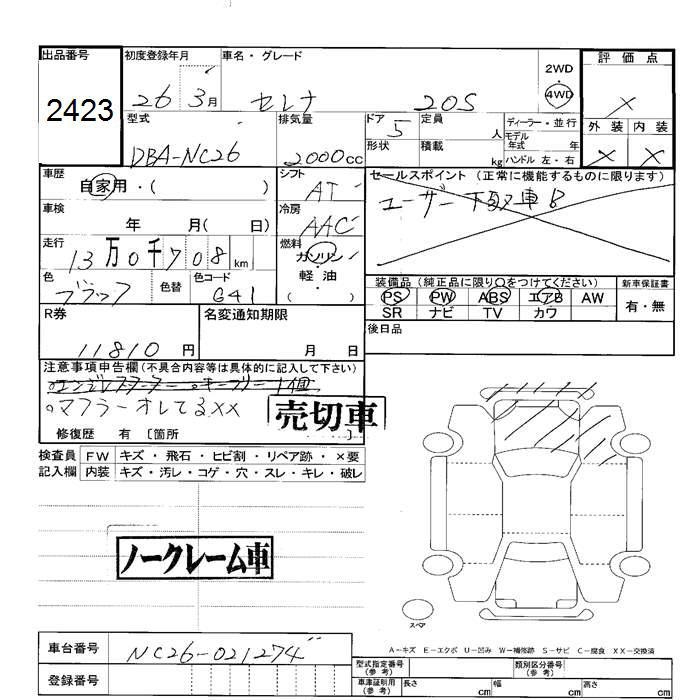 出品番号
2423
初度登録年月
26 3月
車名・グレード
セレナ 20S
2WD
4WD
評価点
×
外装 内装
× ×
型式
DBA-NC26
排気量
2000cc
ドア 5
形状
定員 人
積載 kg
ディーラー・並行
モデル年式 年
ハンドル 左・右
車歴
自家用・( )
シフト
AT
セールスポイント (正常に機能するものに限ります)
ユーザー下取車
車検
年 月( 日)
冷房
AAC
走行
13万0千708km
燃料
ガソリン
軽油
( )
色
ブラック
色替
色コード
G41
装備品(純正品に限り○をつけてください)
PS PW ABS エアB AW
SR ナビ TV カワ
新車保証書
有・無
R券
11810円
名変通知期限
月 日
後日品
注意事項申告欄(不具合内容等は具体的に記入して下さい)
○エンジンスターター ○キーフリー1個
○マフラーオレてる××
売切車
修復歴 有 〔箇所 〕
検査員 FW キズ・飛石・ヒビ割・リペア跡・×要
記入欄 内装 キズ・汚レ・コゲ・穴・スレ・キレ・破レ
ノークレーム車
スペア
A-キズ E-エクボ U-凹み W-補修跡 S-サビ C-腐食 XX-交換済
車台番号
NC26-021274
登録番号
型式指定番号(参考)
類別区分番号(参考)
車庫証明用(参考)
長さ cm 幅 cm 高さ cm